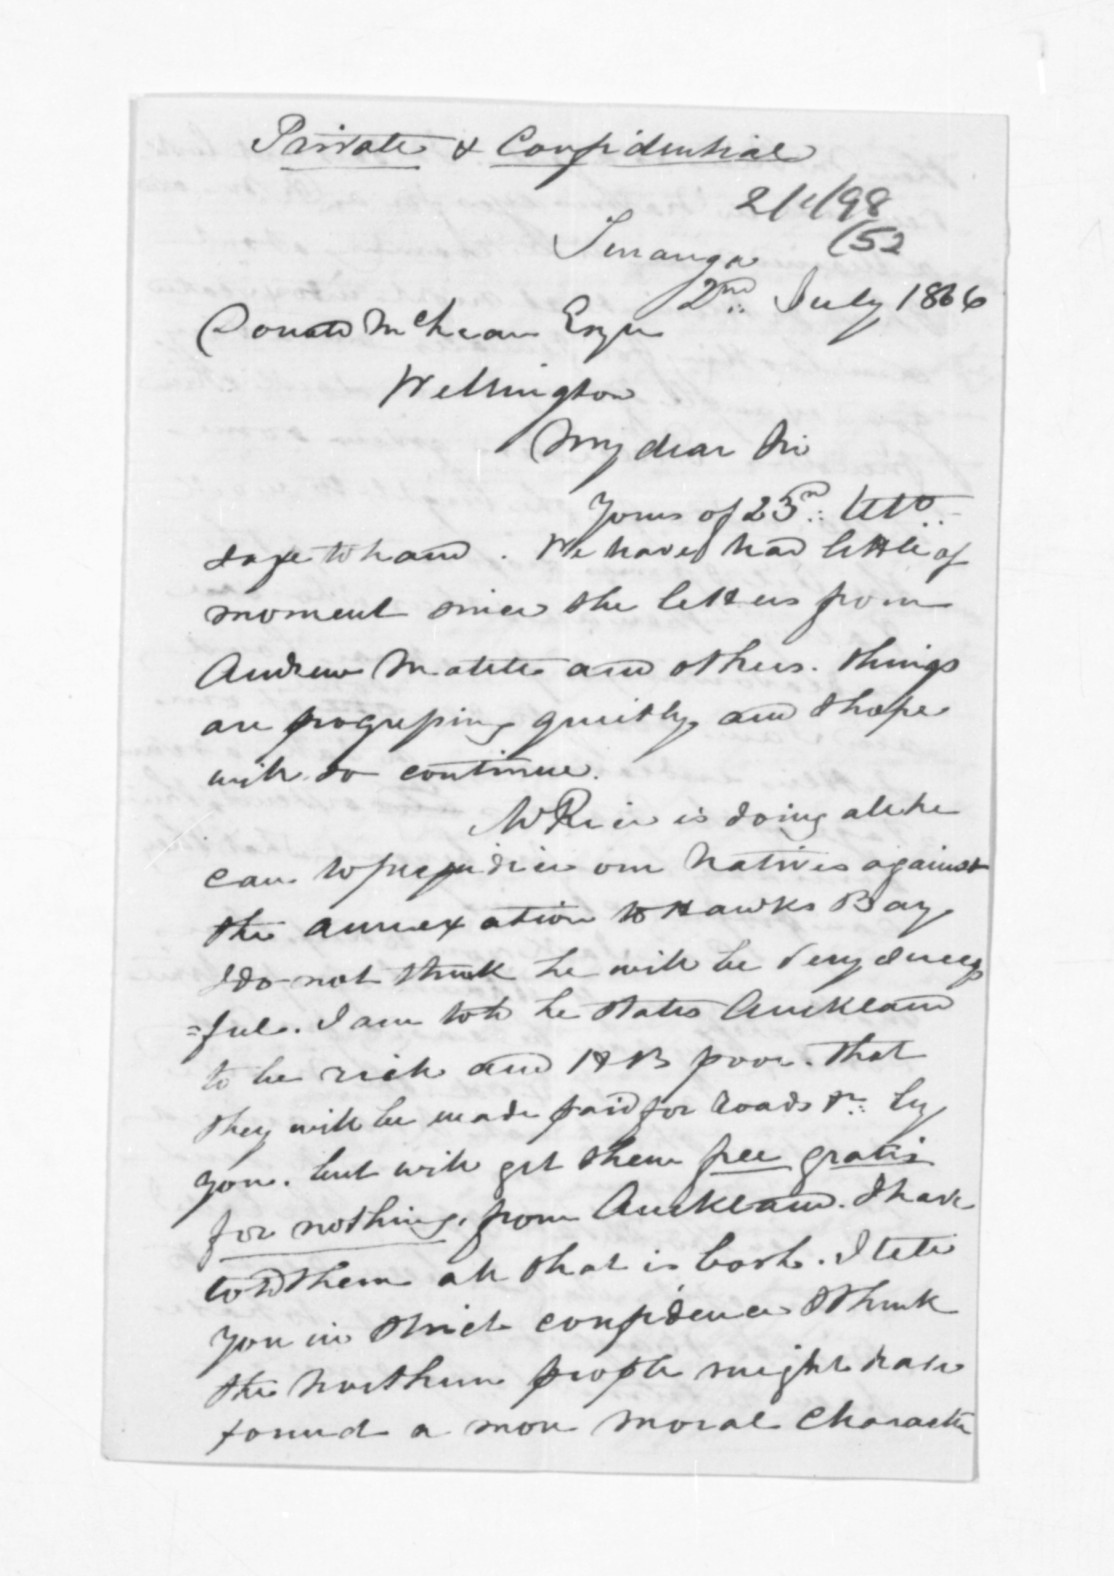 Private & Confidential
2/1/98
(52
Turanga
2nd July 1866
Donald McLean Esqr
Wellington
My dear Sir
Yours of 23rd Ulto
safe to hand. We have had little of
moment since the letters from
Andrew and others. things
are progressing quietly, and I hope
will so continue.
is doing all he
can to prejudice our Natives against
the annexation to Hawks Bay
I do not think he will be very success
=ful. I am told he states Auckland
to be rich and HB poor. that
they will be made paid for roads &c by
you. but will get them free gratis
for nothing, from Auckland. I have
told them all that is bosh. I tell
you in strict confidence I think
the Northern people might have
found a more moral character